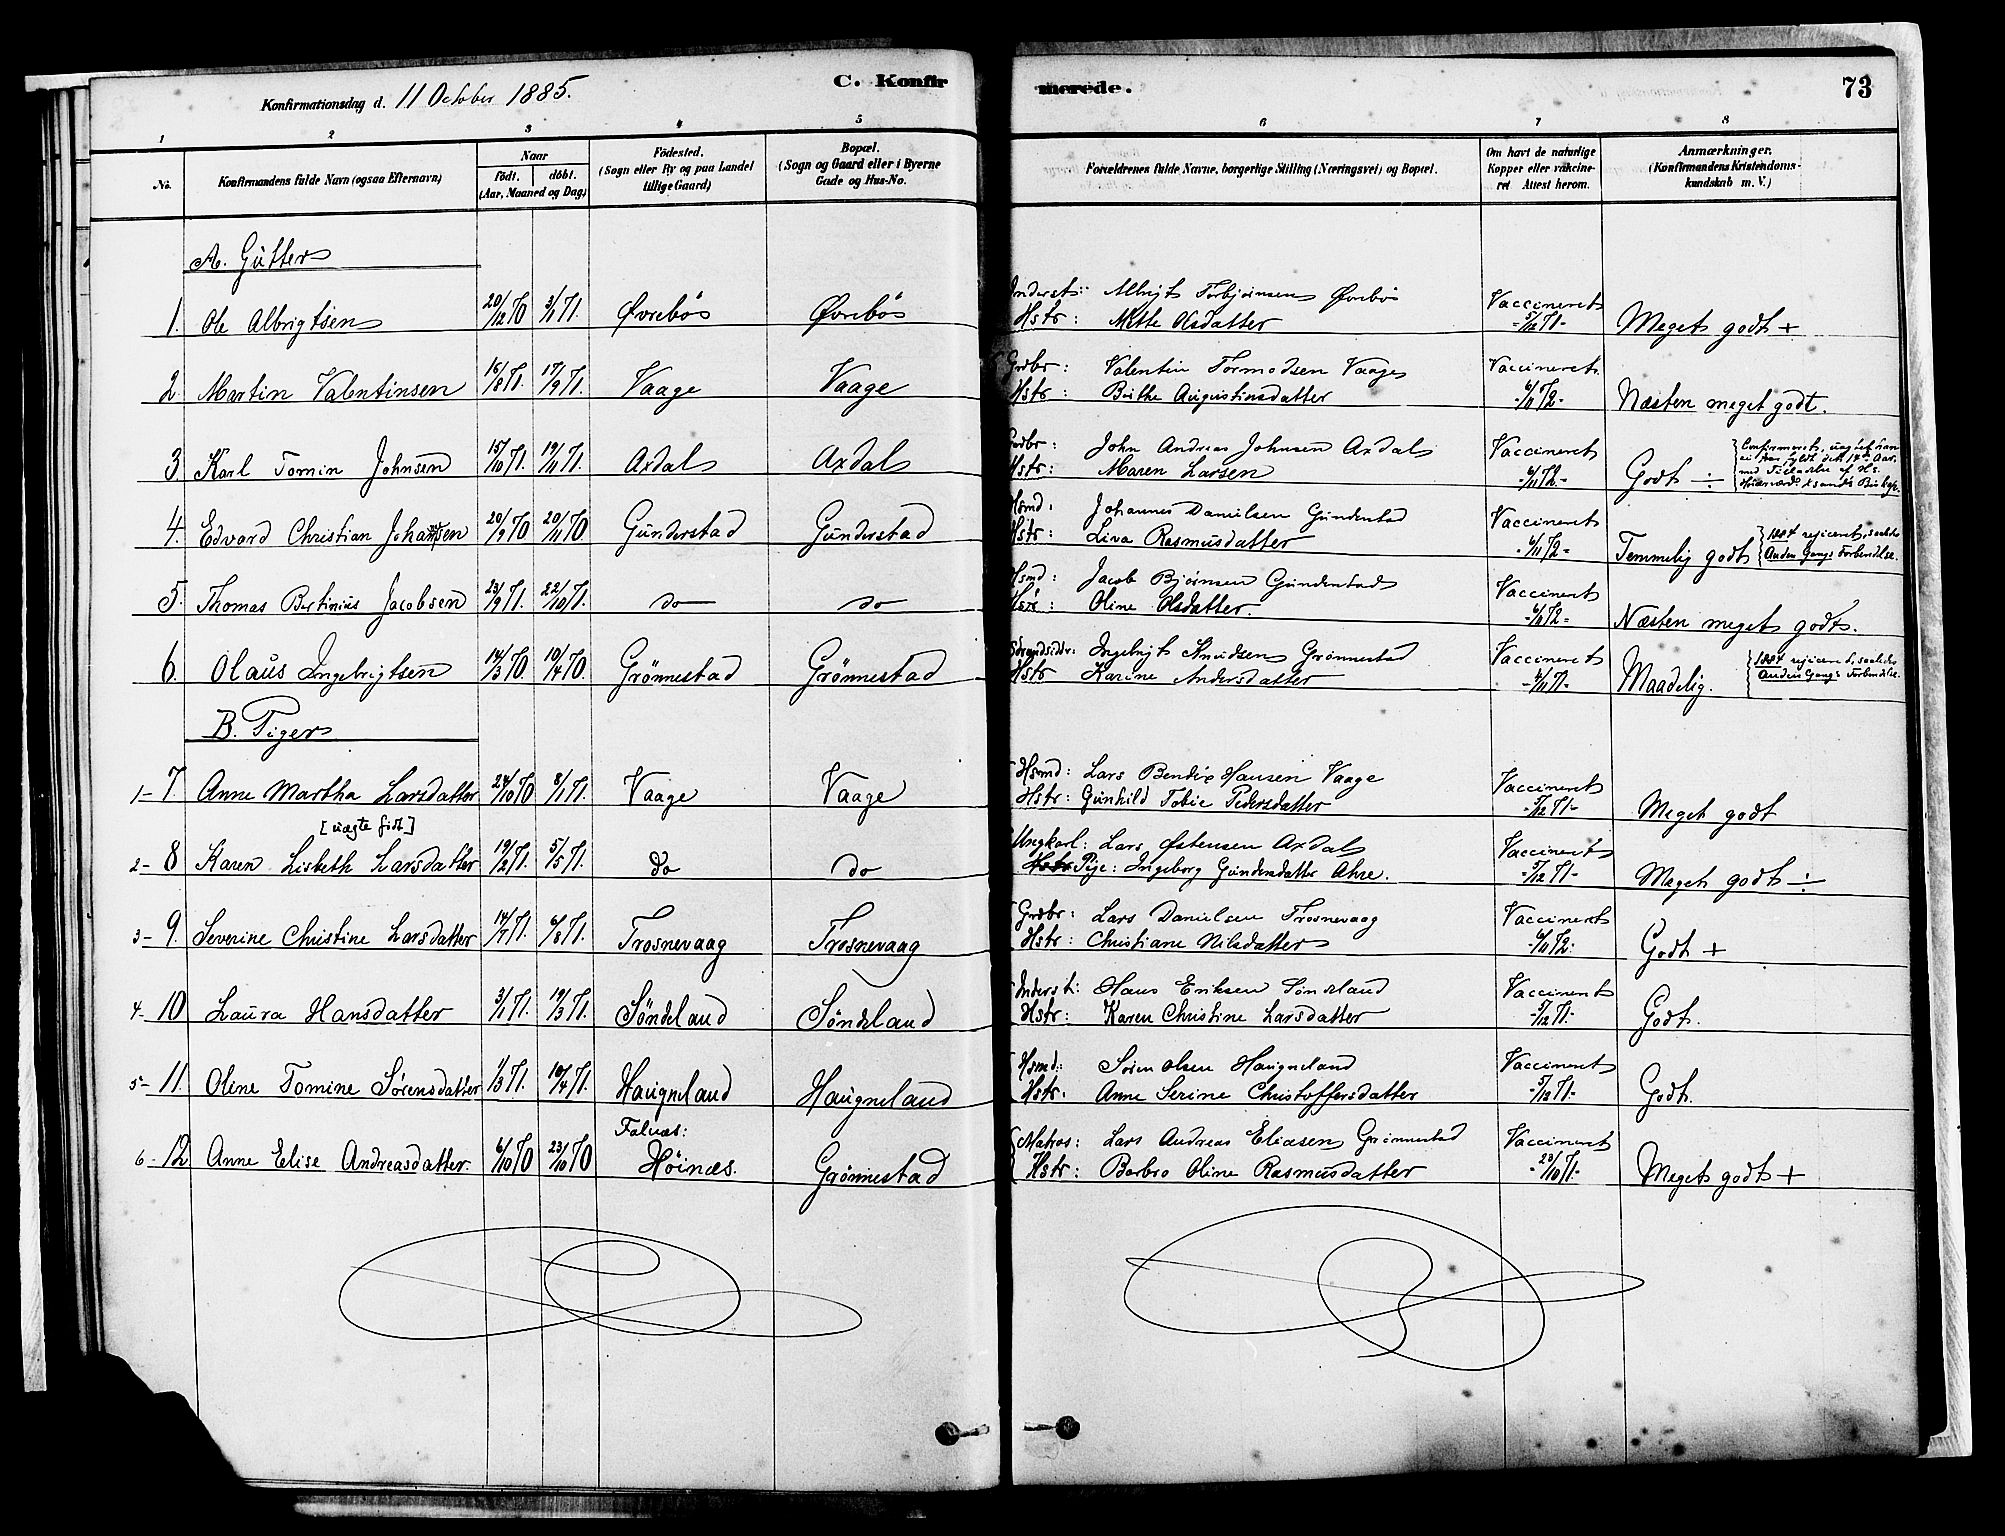 Konfirmationsdag d. 11 October 1885.
C. Konfirmerede.
73
1 2 3 4 5 6 7 8
No.
Konfirmandens fulde Navn (ogsaa Efternavn)
Naar
födt. döbt.
(Aar, Maaned og Dag)
Födested.
(Sogn eller By og paa Landet
tillige Gaard)
Bopæl.
(Sogn og Gaard eller i Byerne
Gade og Hus-No.
Forældrenes fulde Navne, borgerlige Stilling (Næringsvei) og Bopæl.
Om havt de naturlige
Kopper eller vakcine-
ret Attest herom.
Anmærkninger.
(Konfirmandens Kristendoms-
kundskab m. V.)
A. Gutter
1. Ole Albrigtsen 20/12 70 3/1 71. Øvrebös Øvrebös
Inderst: Albrigt Torbjörnsen Øvrebös
Hstr: Mette Olsdatter
Vaccineret
5/12 71 Meget godt +
2. Martin Valentinsen 16/8 71. 17/9 71. Vaage Vaage
Grdbr: Valentin Tormodsen Vaage
Hstr: Birthe Augustinsdatter
Vaccineret
6/11 72 Næsten meget godt.
3. Karl Tomin Johnsen 15/10 71. 19/11 71. Axdal Axdal
Grdbr: John Andreas Johnsen Axdal
Hstr: Maren Larsen
Vaccineret
6/11 72 Godt ÷
Confirmeret, uagtet han
ei har fyldt det 14de Aar,
med Tilladelse af Hs.
4. Edvard Christian Johansen 20/9 70 20/11 70 Gunderstad Gunderstad
Hsmd: Johannes Danielsen Gunderstad
Hstr: Liva Rasmusdatter
Vaccineret
6/11 72 Temmelig godt
1884 rejiceret, saaledes
Anden Gangs Forbindtlse.
5. Thomas Bertinius Jacobsen 23/9 71. 22/10 71. do do
Hsmd: Jacob Björnsen Gunderstad
Hstr: Oline Olsdatter.
Vaccineret
6/11 72 Næsten meget godt.
6. Olaus Ingebrigtsen 14/3 70. 10/4 70. Grönnestad Grönnestad
Strandsiddr: Ingebrigt Knudsen Grönnestad
Hstr Karine Andersdatter
Vaccineret
4/11 71 Maadelig.
1884 rejiceret, saaledes
Anden Gangs Forbindtlse.
B. Piger
1- 7 Anne Martha Larsdatter 24/10 70 8/1 71. Vaage Vaage
Hsmd: Lars Bendix Hansen Vaage
Hstr: Gunhild Tobie Pedersdatter
Vaccineret
5/12 71 Meget godt
[uægte födt]
2- 8 Karen Lisbeth Larsdatter 19/2 71. 5/5 71. do do
Ungkarl: Lars Østensen Axdal
Hstr Pige: Ingeborg Gundersdatter Ahre.
Vaccineret
5/12 71 Meget godt ÷
3- 9. Severine Christine Larsdatter 14/7 71. 6/8 71. Trosnevaag Trosnevaag
Grdbr: Lars Danielsen Trosnevaag
Hstr: Christiane Nilsdatter
Vaccineret
6/11 72 Godt +
4- 10 Laura Hansdatter 3/1 71. 19/3 71. Söndeland Söndeland
Inderst: Hans Eriksen Söndeland
Hstr: Karen Christine Larsdatter
Vaccineret
5/12 71 Godt.
5- 11. Oline Tomine Sörensdatter 1/3 71. 10/4 71. Haugneland Haugneland
Hsmd: Sören Olsen Haugneland
Hstr: Anne Serine Christoffersdatter
Vaccineret
5/12 71 Godt.
6- 12 Anne Elise Andreasdatter. 6/10 70 23/10 70 Falnæs:
Höinæs. Grönnestad
Matros: Lars Andreas Eliasen Grönnestad
Hstr: Barbro Oline Rasmusdatter
Vaccineret
23/10 71 Meget godt +